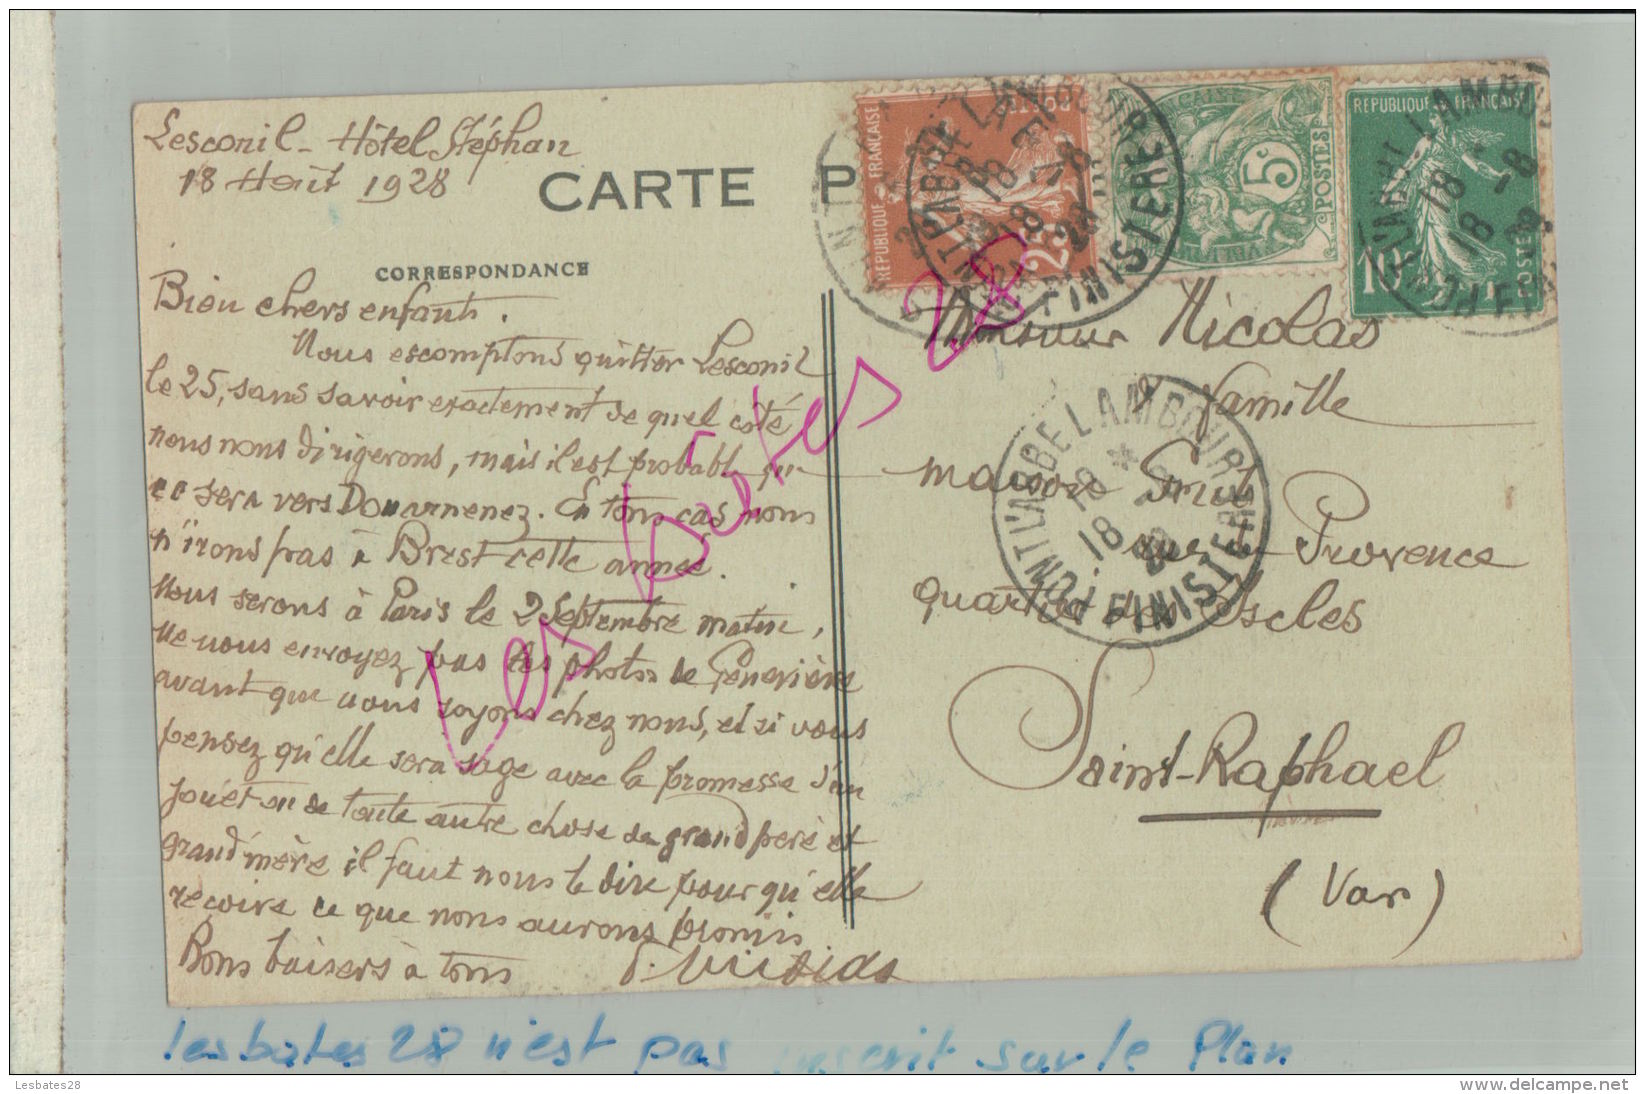 Lesconil - Hôtel Stéphan
18 Août 1928
CARTE P
CORRESPONDANCE
Bien chers enfants.
Nous escomptons quitter Lesconil
le 25, sans savoir exactement de quel côté
nous nous dirigerons, mais il est probabl. que
ce sera vers Douarnenez. En tous cas nous
n'irons pas à Brest cette année.
Nous serons à Paris le 2 Septembre matin,
Ne nous envoyez pas les photos de Geneviève
avant que nous soyons chez nous, et si vous
pensez qu'elle sera sage avec la promesse d'un
jouet ou de toute autre chose de grand père et
grand'mère il faut nous le dire pour qu'elle
reçoive ce que nous aurons promis
Bons baisers à tous
REPUBLIQUE FRANÇAISE
25
5c
POSTES
REPUBLIQUE FRANÇAISE
10
POSTES
PONT L'ABBE LAMBOUR
18 - 8
18
28
FINISTERE
Monsieur Nicolas
famille
maison
Provence
quartier des Iscles
Saint-Raphael
(Var)
PONT L'ABBE LAMBOUR
18
FINISTERE
Les bates 28
lesbates 28 n'est pas inscrit sur le Plan
Lesbates28
www.delcampe.net